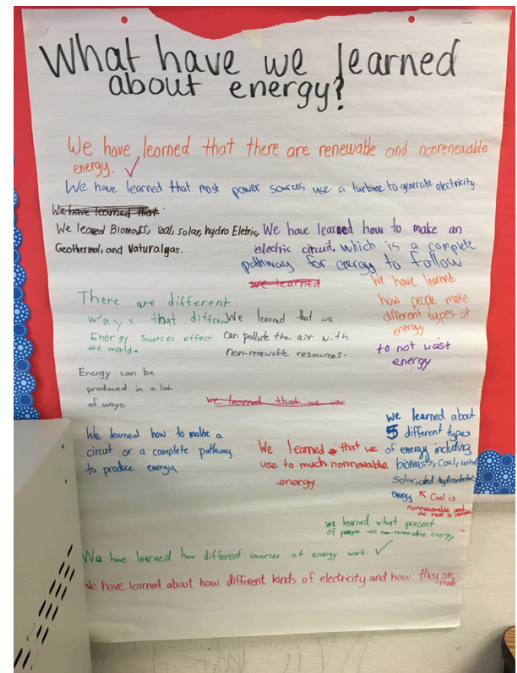 What have we learned
about energy?
We have learned that there are renewable and nonrenewable
energy.
We have learned that most power sources use a turbine to generate electricity.
We have learned that
We leaned Biomass, coal, solar, hydro Eletric,
Geothermal, and Natural gas.
We have learned how to make an
electric circuit, which is a complete
pathway for energy to follow
we learned
We have learned
how people make
different types of
energy
to not wast
energy
There are different
ways that different
Energy sources effect
the world.
We learned that we
can pollute the air with
non-renewable resources.
Energy can be
produced in a lot
of ways
we learned that we use
We learned how to make a
circut or a complete pathway
to produce energy
We learned that we
use to much nonrenewable
energy
we learned about
5 different types
of energy including
biomass, coal,
solar, and
energy
Coal is
nonrenewable and
the rest is
we learned what precent
of people use non-renewable energy
We have learned how different sources of energy work.
We have learned about how different kinds of electricity and how they are
made